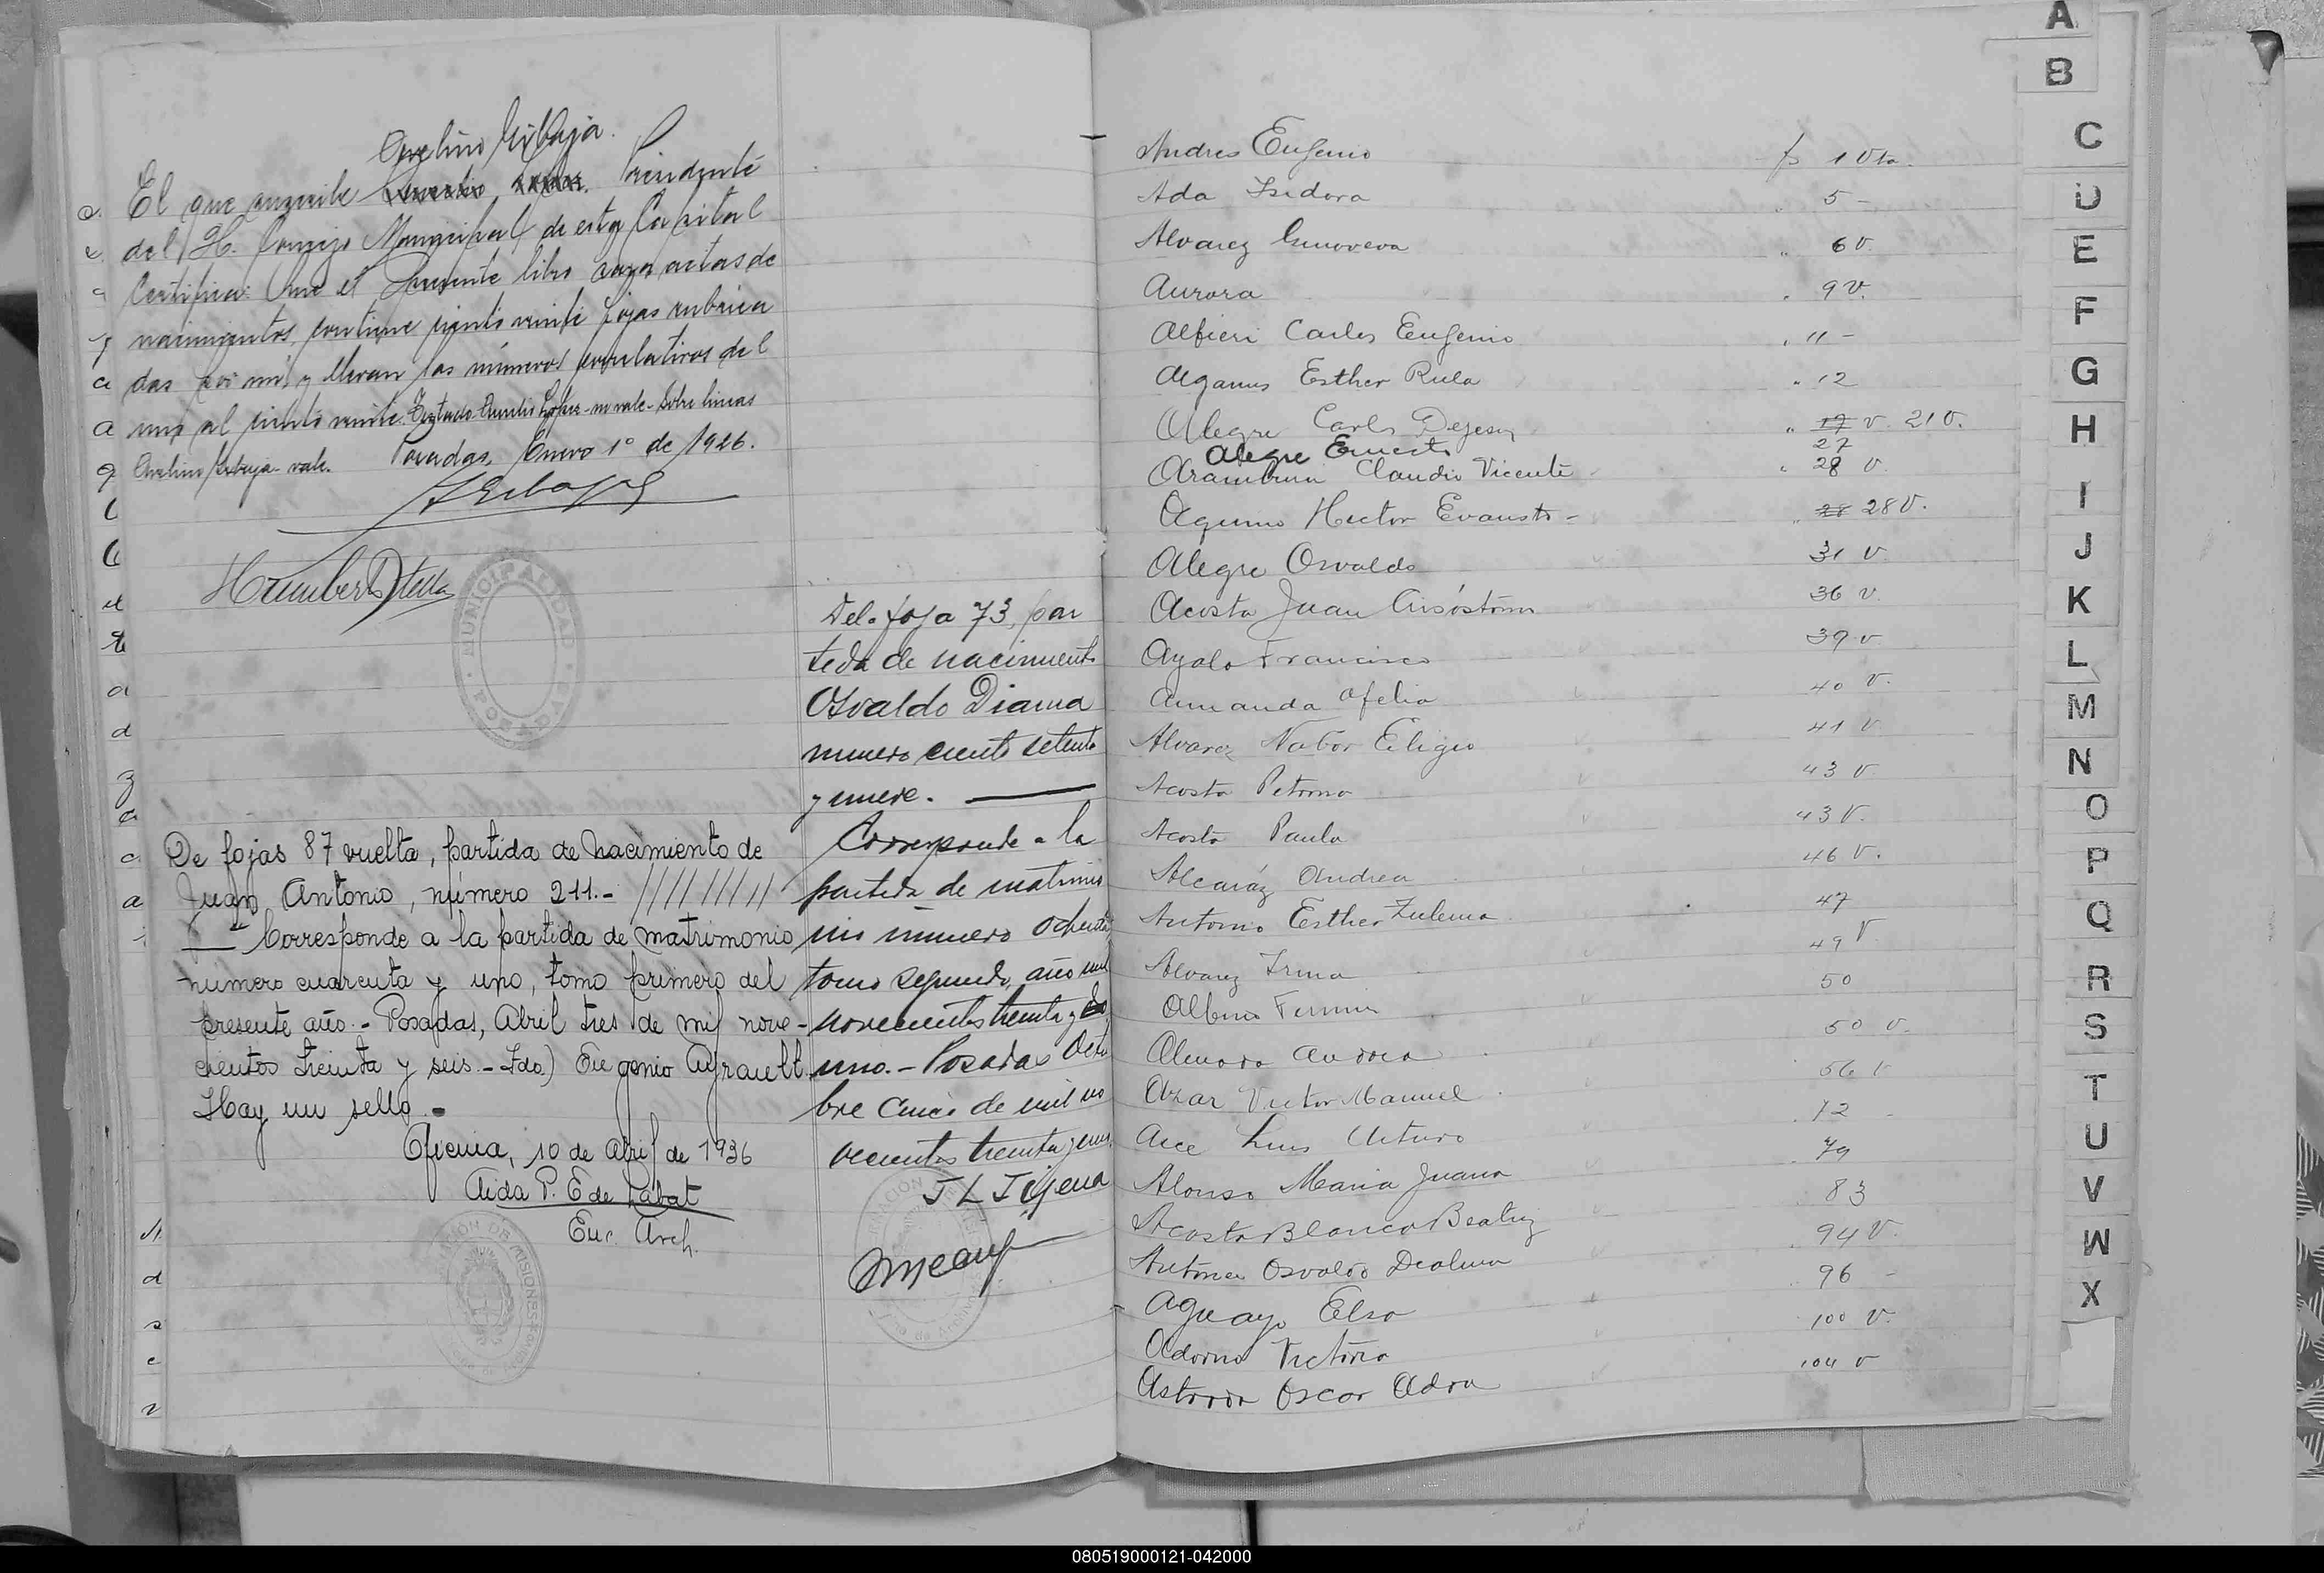 Avelino Eribaja.
El que suscribe Presidente
del H. Consejo Municipal de esta Capital
Certifica: Que el presente libro para actas de
nacimientos, contiene ciento veinte fojas rubrica
das por mí y llevan los números correlativos del
uno al ciento veinte. Testado - Aurelio López - no vale - Sobre lineas
Avelino Eribaja - vale. Posadas, Enero 1° de 1926.
MUNICIPALIDAD
POSADAS
De fojas 87 vuelta, partida de Nacimiento de
Juan Antonio, número 211.-
Corresponde a la partida de matrimonio
número cuarenta y uno, tomo primero del
presente año.- Posadas, Abril tres de mil nove-
cientos treinta y seis.- Fdo.) Eugenio Ayrault.
Hay un sello.-
Oficina, 10 de Abril de 1936
Aida P. E de Labat
Enc. Arch.
De la foja 73, par
tida de nacimiento
Osvaldo Diama
número ciento setenta
y nueve.
Corresponde a la
partida de matrimo
nio número ochenta,
tomo segundo, año mil
novecientos treinta y
uno.- Posadas Octu
bre cinco de mil no
vecientos treinta y uno.
J L Tijena
Andres Eugenio fs 1 Vta.
Ada Isidora 5 -
Alvarez Genoveva 6 V.
Aurora 9 V.
Alfieri Carlos Eugenio 11 -
Esther Rula 12
Alegre Carlos Dejesus 17 V. 21 V.
Alegre Ernesto 27
Aramburu Claudio Vicente 28 V.
Aquino Hector Evaristo - 28 28 V.
Alegre Osvaldo 31 V
Acosta Juan Crisóstomo 36 V.
Ayala Francisco 39 V
Armanda Ofelia 40 V.
Alvarez Nabor Eligio 41 V.
Acosta Petrona 43 V
Acosta Paula 43 V.
Alcaráz Andrea 46 V.
Antonio Esther Zulema 47
Alvarez Irma 49 V
Albino Fermin 50
Almada Andrea 50 V.
Azar Victor Manuel 56 V
Arce Luis Arturo 72 -
Alonso Maria Juana 79
Acosta Blanca Beatriz 83
Antunez Osvaldo Dealma 94 V.
Aguayo Elsa 96 -
Adorno Victoria 100 V.
Oscar Adon 104 V
A
B
C
D
E
F
G
H
I
J
K
L
M
N
O
P
Q
R
S
T
U
V
W
X
080519000121-042000